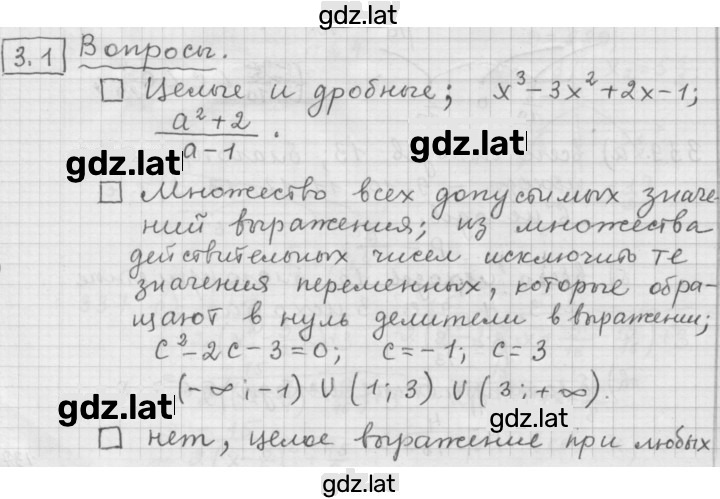 gdz.lat
3.1 Вопросы.
□ Целые и дробные; x³-3x²+2x-1;
(a²+2)/(a-1).
gdz.lat
gdz.lat
□ Множество всех допустимых значе-
ний выражения; из множества
действительных чисел исключить те
значения переменных, которые обра-
щают в нуль делители в выражении;
c²-2c-3=0; c=-1; c=3
(-∞;-1) ∪ (1;3) ∪ (3;+∞).
gdz.lat
gdz.lat
□ нет, целое выражение при любых
gdz.lat